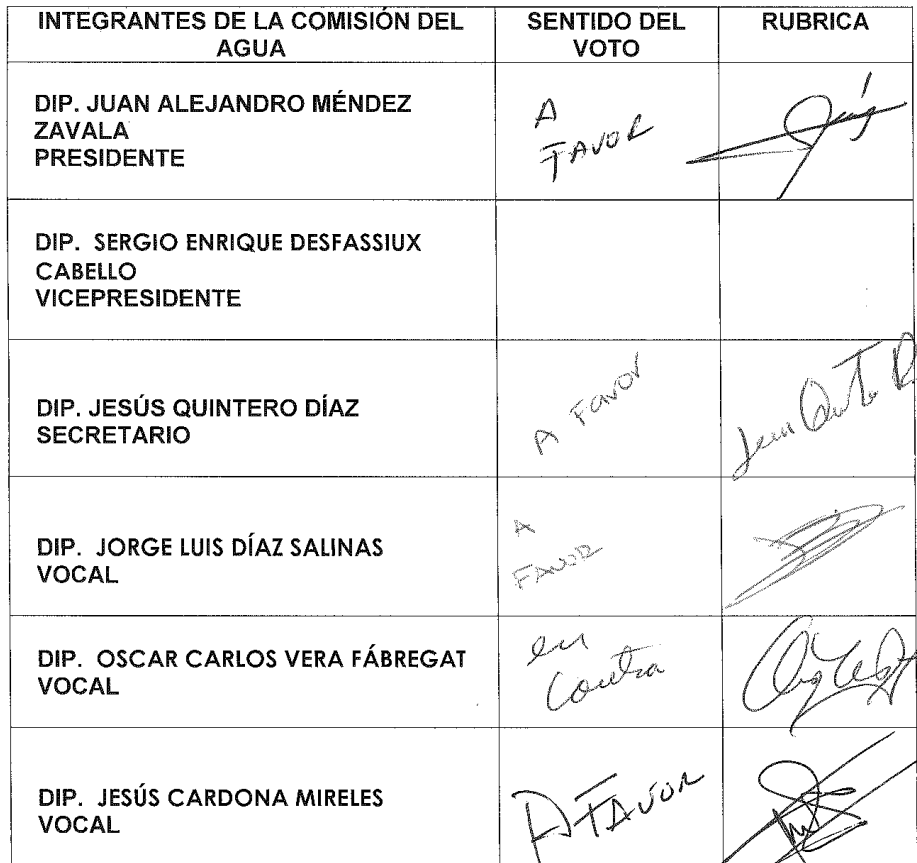 INTEGRANTES DE LA COMISIÓN DEL
AGUA
SENTIDO DEL
VOTO
RUBRICA
DIP. JUAN ALEJANDRO MÉNDEZ
ZAVALA
PRESIDENTE
A
FAVOR
DIP. SERGIO ENRIQUE DESFASSIUX
CABELLO
VICEPRESIDENTE
DIP. JESÚS QUINTERO DÍAZ
SECRETARIO
A Favor
DIP. JORGE LUIS DÍAZ SALINAS
VOCAL
A
FAVOR
DIP. OSCAR CARLOS VERA FÁBREGAT
VOCAL
en
Contra
DIP. JESÚS CARDONA MIRELES
VOCAL
A FAVOR